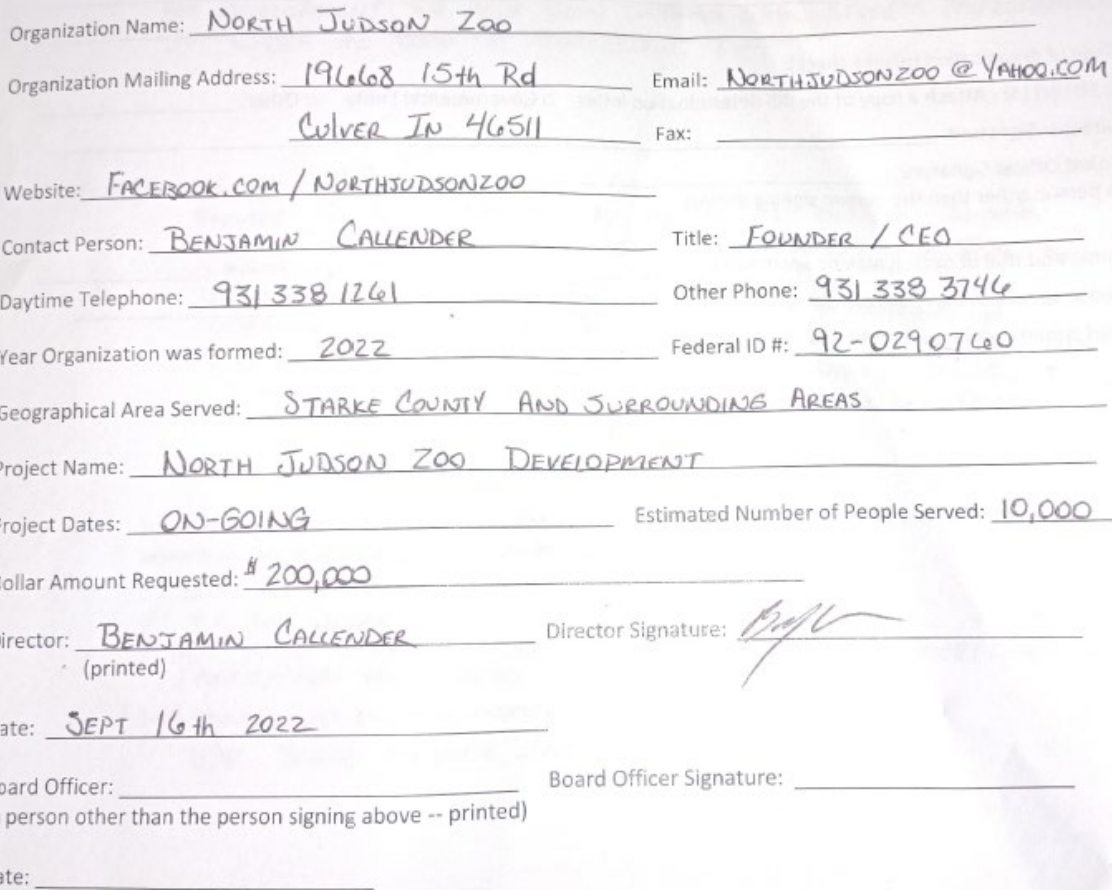 Organization Name: NORTH JUDSON ZOO
Organization Mailing Address: 19668 15th Rd Email: NORTHJUDSONZOO @ YAHOO.COM
CULVER IN 46511 Fax:
Website: FACEBOOK.COM / NORTHJUDSONZOO
Contact Person: BENJAMIN CALLENDER Title: FOUNDER / CEO
Daytime Telephone: 931 338 1261 Other Phone: 931 338 3746
Year Organization was formed: 2022 Federal ID #: 92-0290760
Geographical Area Served: STARKE COUNTY AND SURROUNDING AREAS
Project Name: NORTH JUDSON ZOO DEVELOPMENT
Project Dates: ON-GOING Estimated Number of People Served: 10,000
Dollar Amount Requested: $ 200,000
Director: BENJAMIN CALLENDER Director Signature:
(printed)
ate: SEPT 16th 2022
oard Officer: Board Officer Signature:
person other than the person signing above -- printed)
ate: